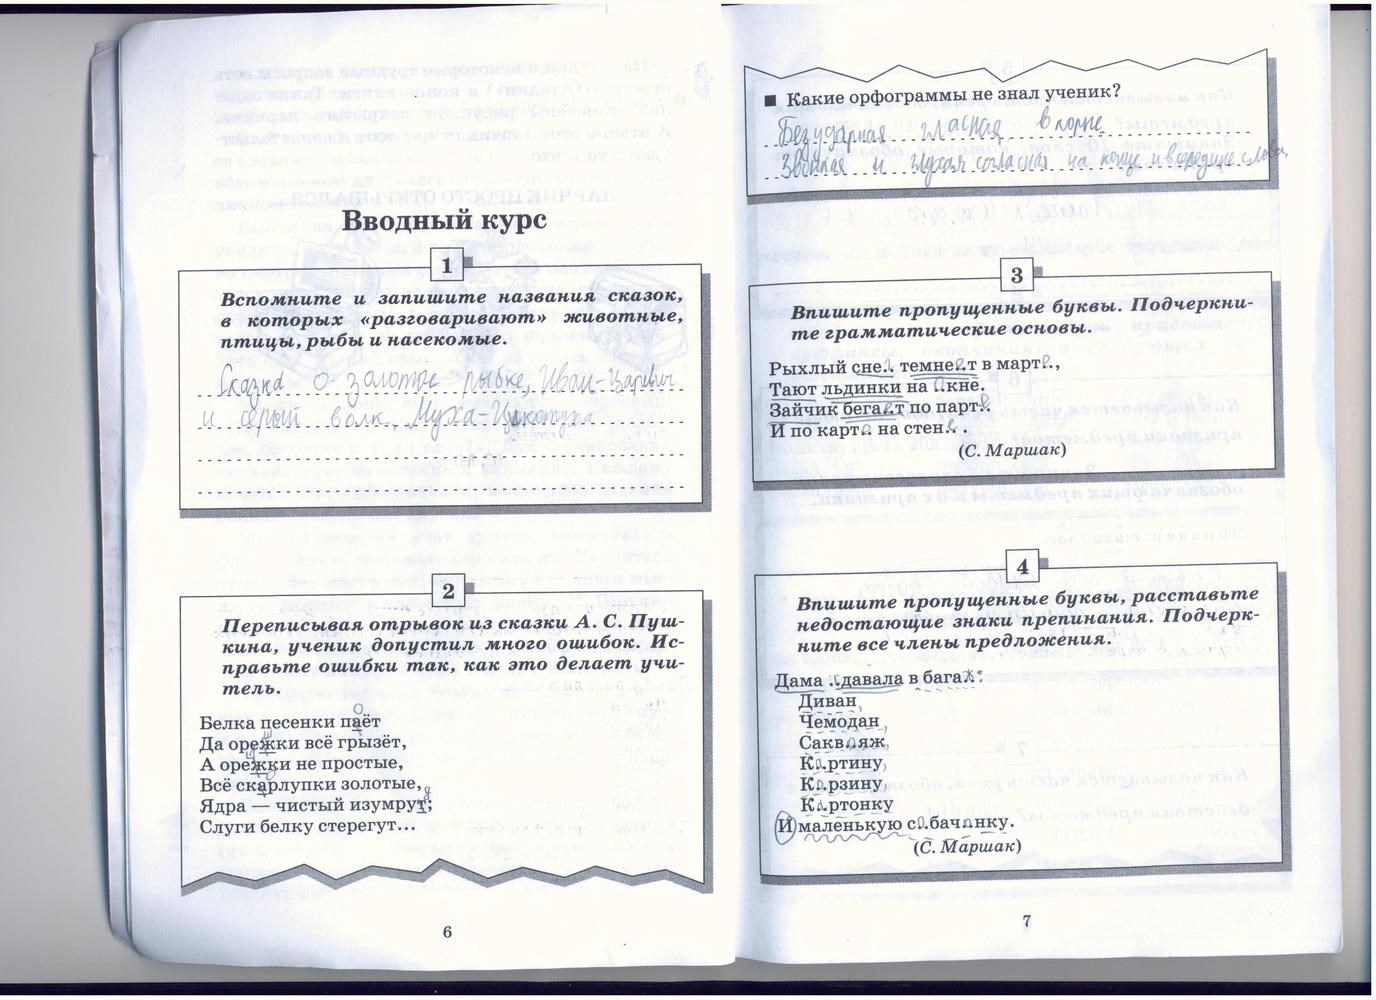 Вводный курс
1
Вспомните и запишите названия сказок,
в которых «разговаривают» животные,
птицы, рыбы и насекомые.
Сказка о золотые рыбке, Иван-Царевич
и серый волк, Муха-Цокотуха
2
Переписывая отрывок из сказки А. С. Пуш-
кина, ученик допустил много ошибок. Ис-
правьте ошибки так, как это делает учи-
тель.
о
Белка песенки паёт
Да орежки всё грызёт,
ш
А орежки не простые,
ш
Всё скарлупки золотые,
о
Ядра — чистый изумрут;
д
Слуги белку стерегут...
6
Какие орфограммы не знал ученик?
Безударная гласная в корне
Звонкая и глухая согласная на конце и в середине слова
3
Впишите пропущенные буквы. Подчеркни-
те грамматические основы.
Рыхлый снег темнеет в марте,
Тают льдинки на окне.
Зайчик бегает по парте
И по карте на стене.
(С. Маршак)
4
Впишите пропущенные буквы, расставьте
недостающие знаки препинания. Подчерк-
ните все члены предложения.
Дама сдавала в багаж:
Диван,
Чемодан,
Саквояж,
Картину,
Корзину,
Картонку
И маленькую собачонку.
(С. Маршак)
7